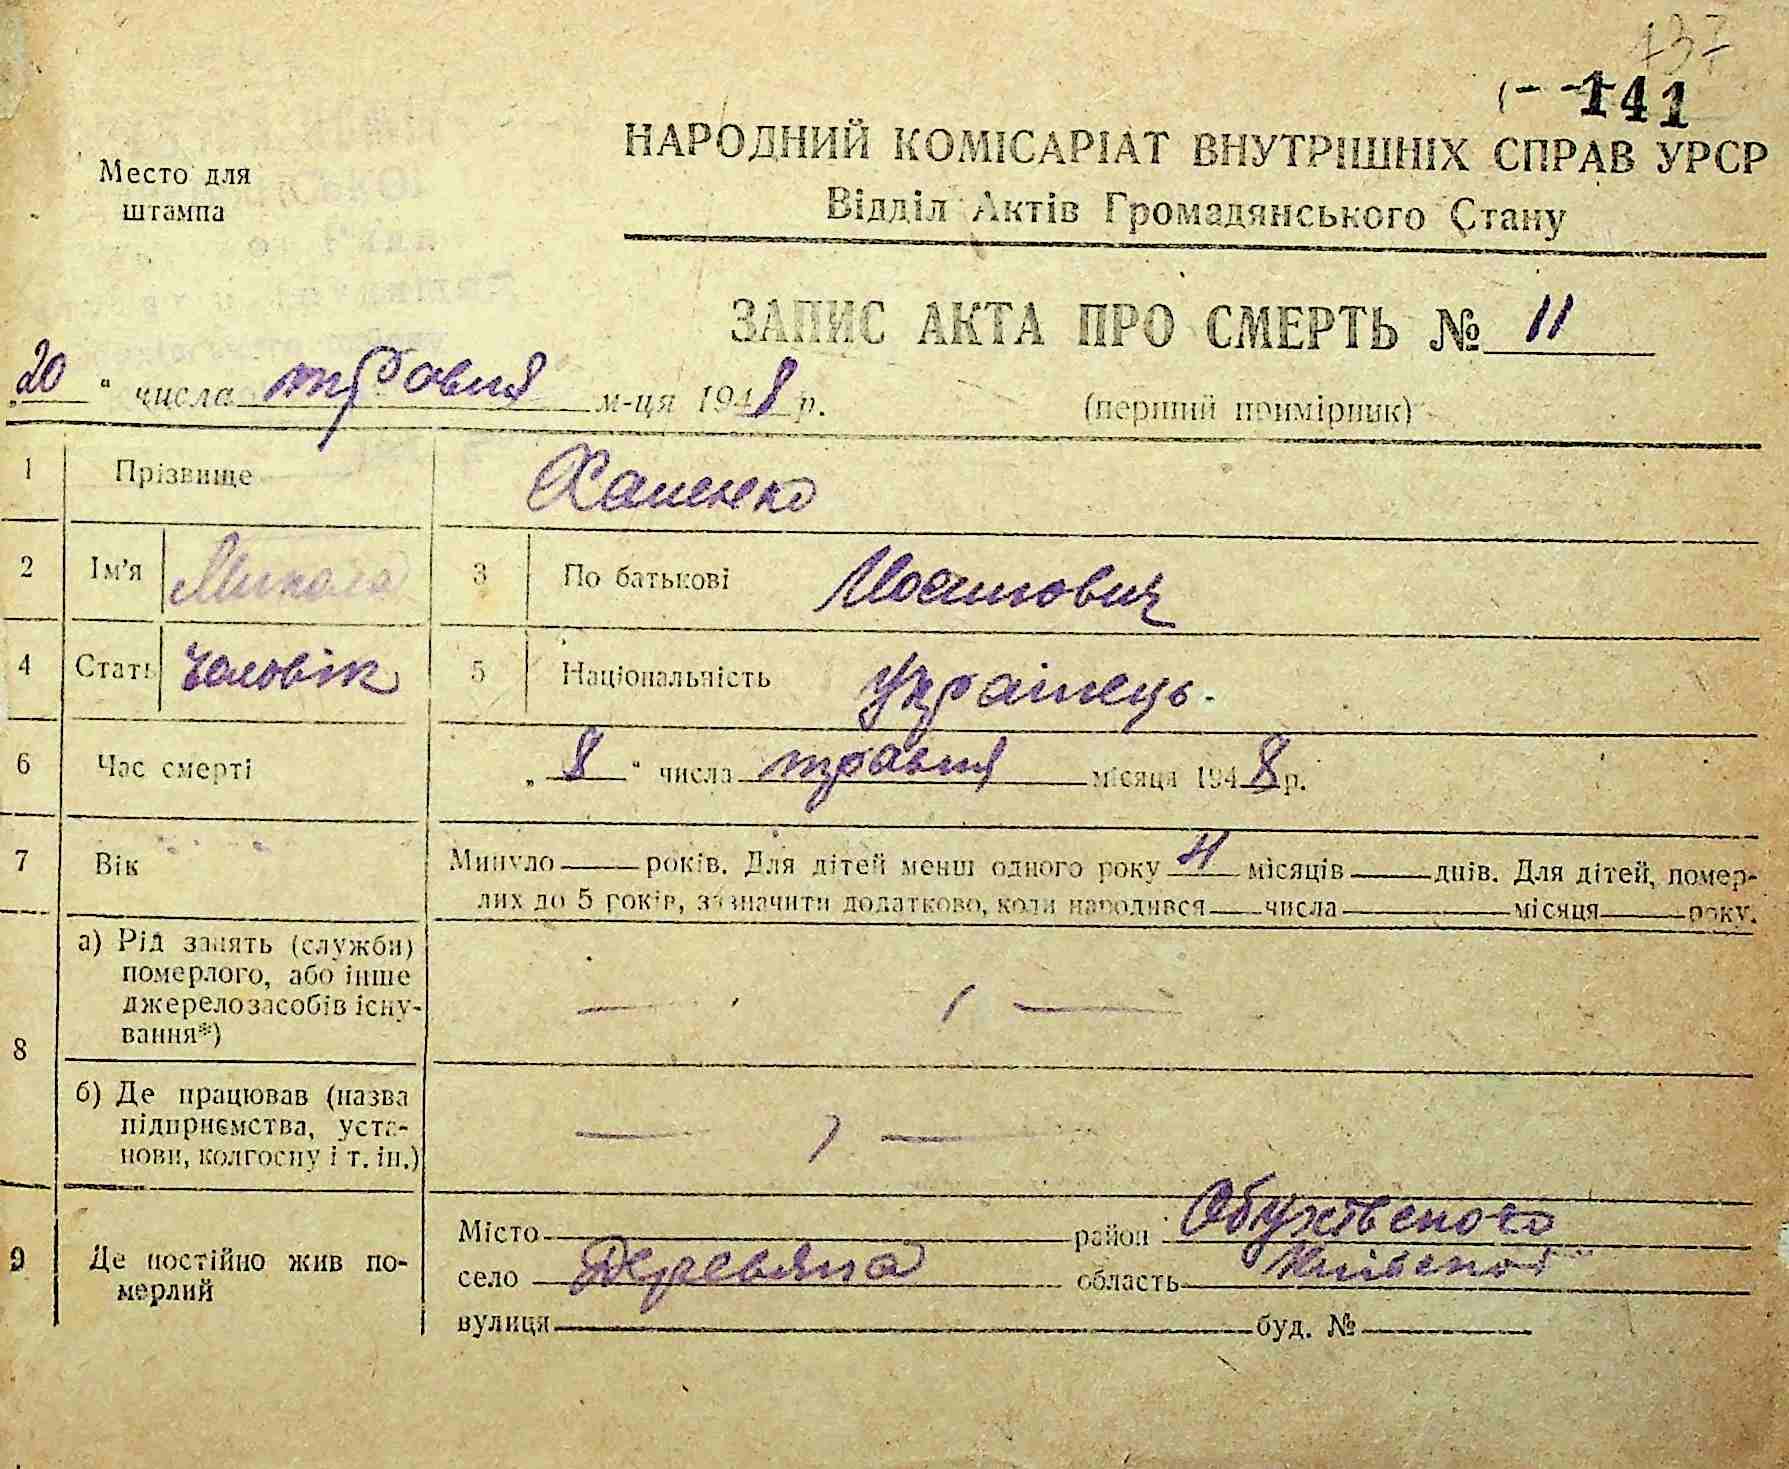 137
141
НАРОДНИЙ КОМІСАРІАТ ВНУТРІШНІХ СПРАВ УРСР
Место для
штампа
Відділ Актів Громадянського Стану
ЗАПИС АКТА ПРО СМЕРТЬ № 11
„20" числа травня м-ця 1948 р.
(перший примірник)
1 Прізвище Ханенко
2 Ім'я Микола 3 По батькові
4 Стать чоловік 5 Національність Українець.
6 Час смерті „8" числа травня місяця 1948 р.
7 Вік Минуло років. Для дітей менш одного року 4 місяців днів. Для дітей, помер-
лих до 5 років, зазначити додатково, коли народився числа місяця року.
8 а) Рід занять (служби)
померлого, або інше
джерело засобів існу-
вання*)
б) Де працював (назва
підприємства, уста-
нови, колгоспу і т. ін.)
9 Де постійно жив по-
мерлий
Місто район Обухівського
село Деревяна область Київської
вулиця буд. №